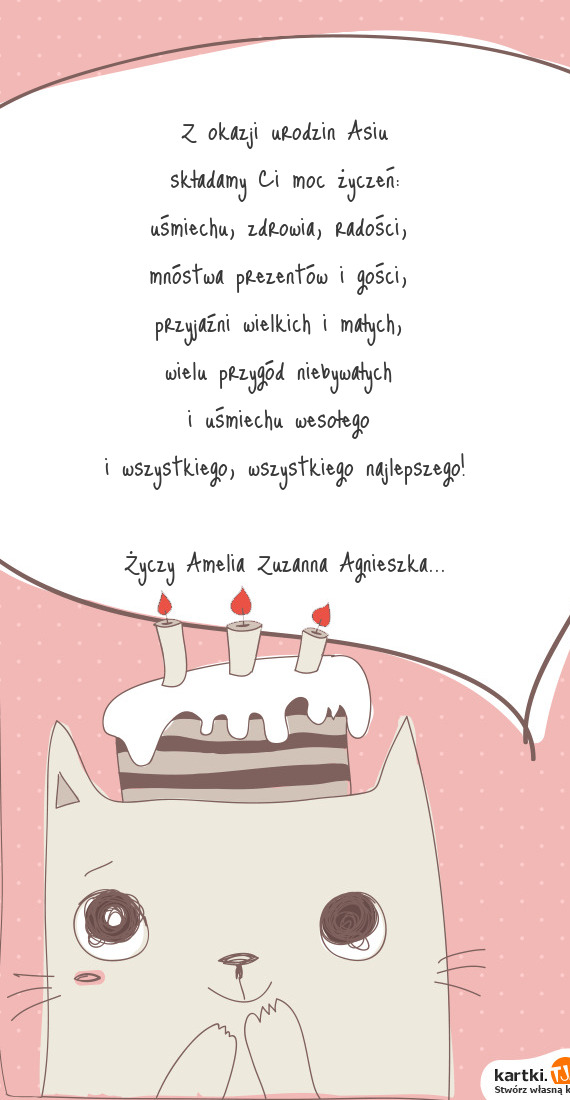 Z okazji urodzin Asiu
składamy Ci moc życzeń:
uśmiechu, zdrowia, radości,
mnóstwa prezentów i gości,
przyjaźni wielkich i małych,
wielu przygód niebywałych
i uśmiechu wesołego
i wszystkiego, wszystkiego najlepszego!
Życzy Amelia Zuzanna Agnieszka...
kartki.TJ
Stwórz własną k